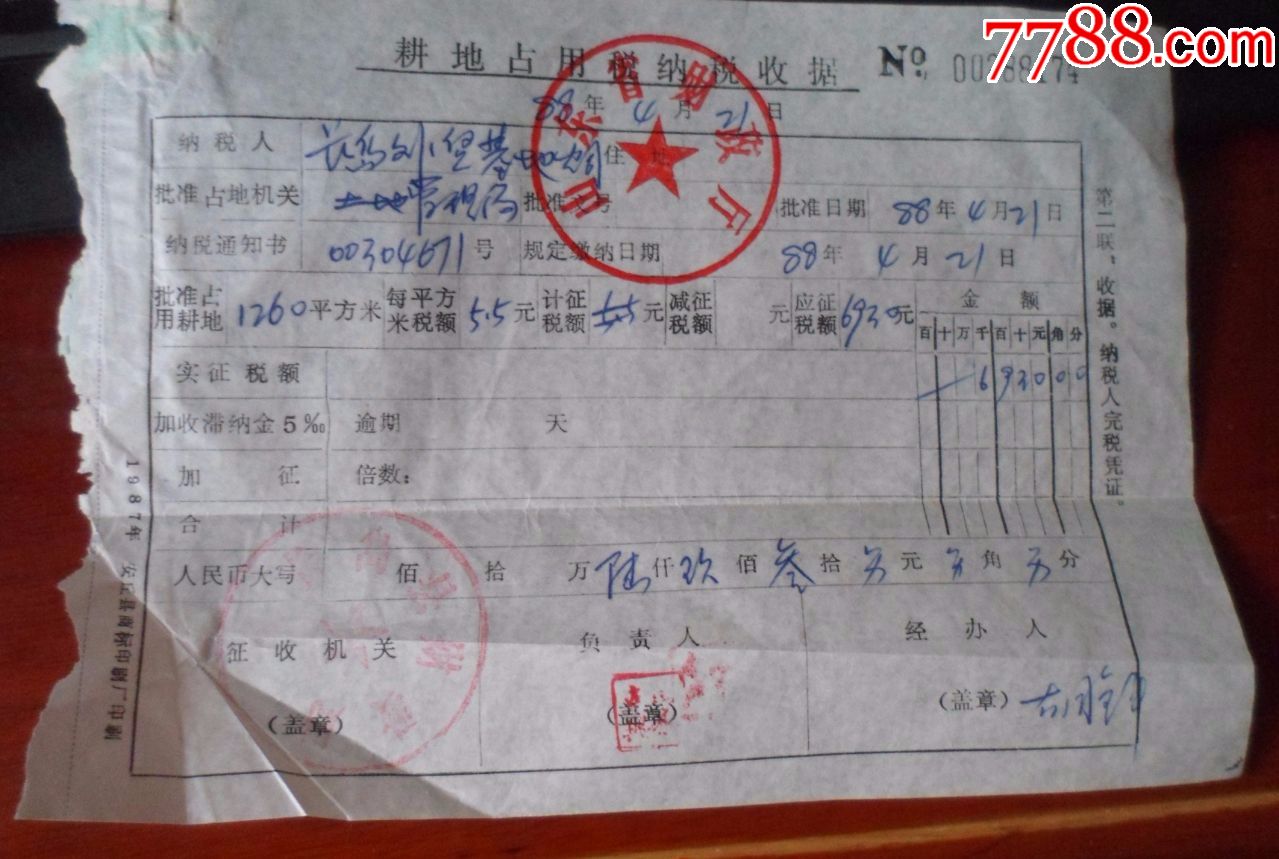 7788.com
耕地占用税纳税收据 No 00388174
88年4月21日
纳税人 长岛 住地
批准占地机关 土地管理局 批准文号 批准日期 88年4月21日
纳税通知书 00304671号 规定缴纳日期 88年4月21日
批准占用耕地 1260平方米 每平方米税额 5.5元 计征税额 5.5元 减征税额 元 应征税额 6930元 金额
百十万千百十元角分
实征税额 6930 00
加收滞纳金5‰ 逾期 天
加征 倍数:
合计
人民币大写 佰 拾 万 陆仟玖佰叁拾 元 角 分
征收机关 负责人 经办人
(盖章) (盖章) (盖章)
第二联:收据。纳税人完税凭证。
1987年 安丘县商标印刷厂印
山东省财政厅